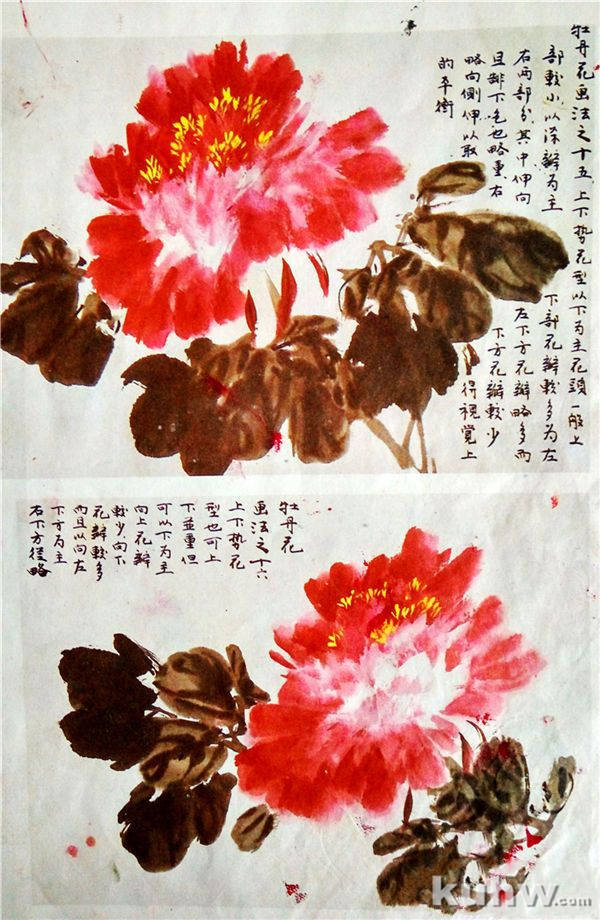 牡丹花画法之十五 上下势花型以下为主花頭一般上
部較小以深瓣为主 下部花瓣較多为左
右两部分其中伸向 左下方花瓣略多而
且排下色也略重右 下方花瓣較少
略向侧伸以取 得視覚上
的平衡
牡丹花
画法之十六
上下势花
型也可上
下並重但
可以下为主
向上花瓣
較少向下
花瓣較多
而且以向左
下方为主
右下方径略
kuhw.com